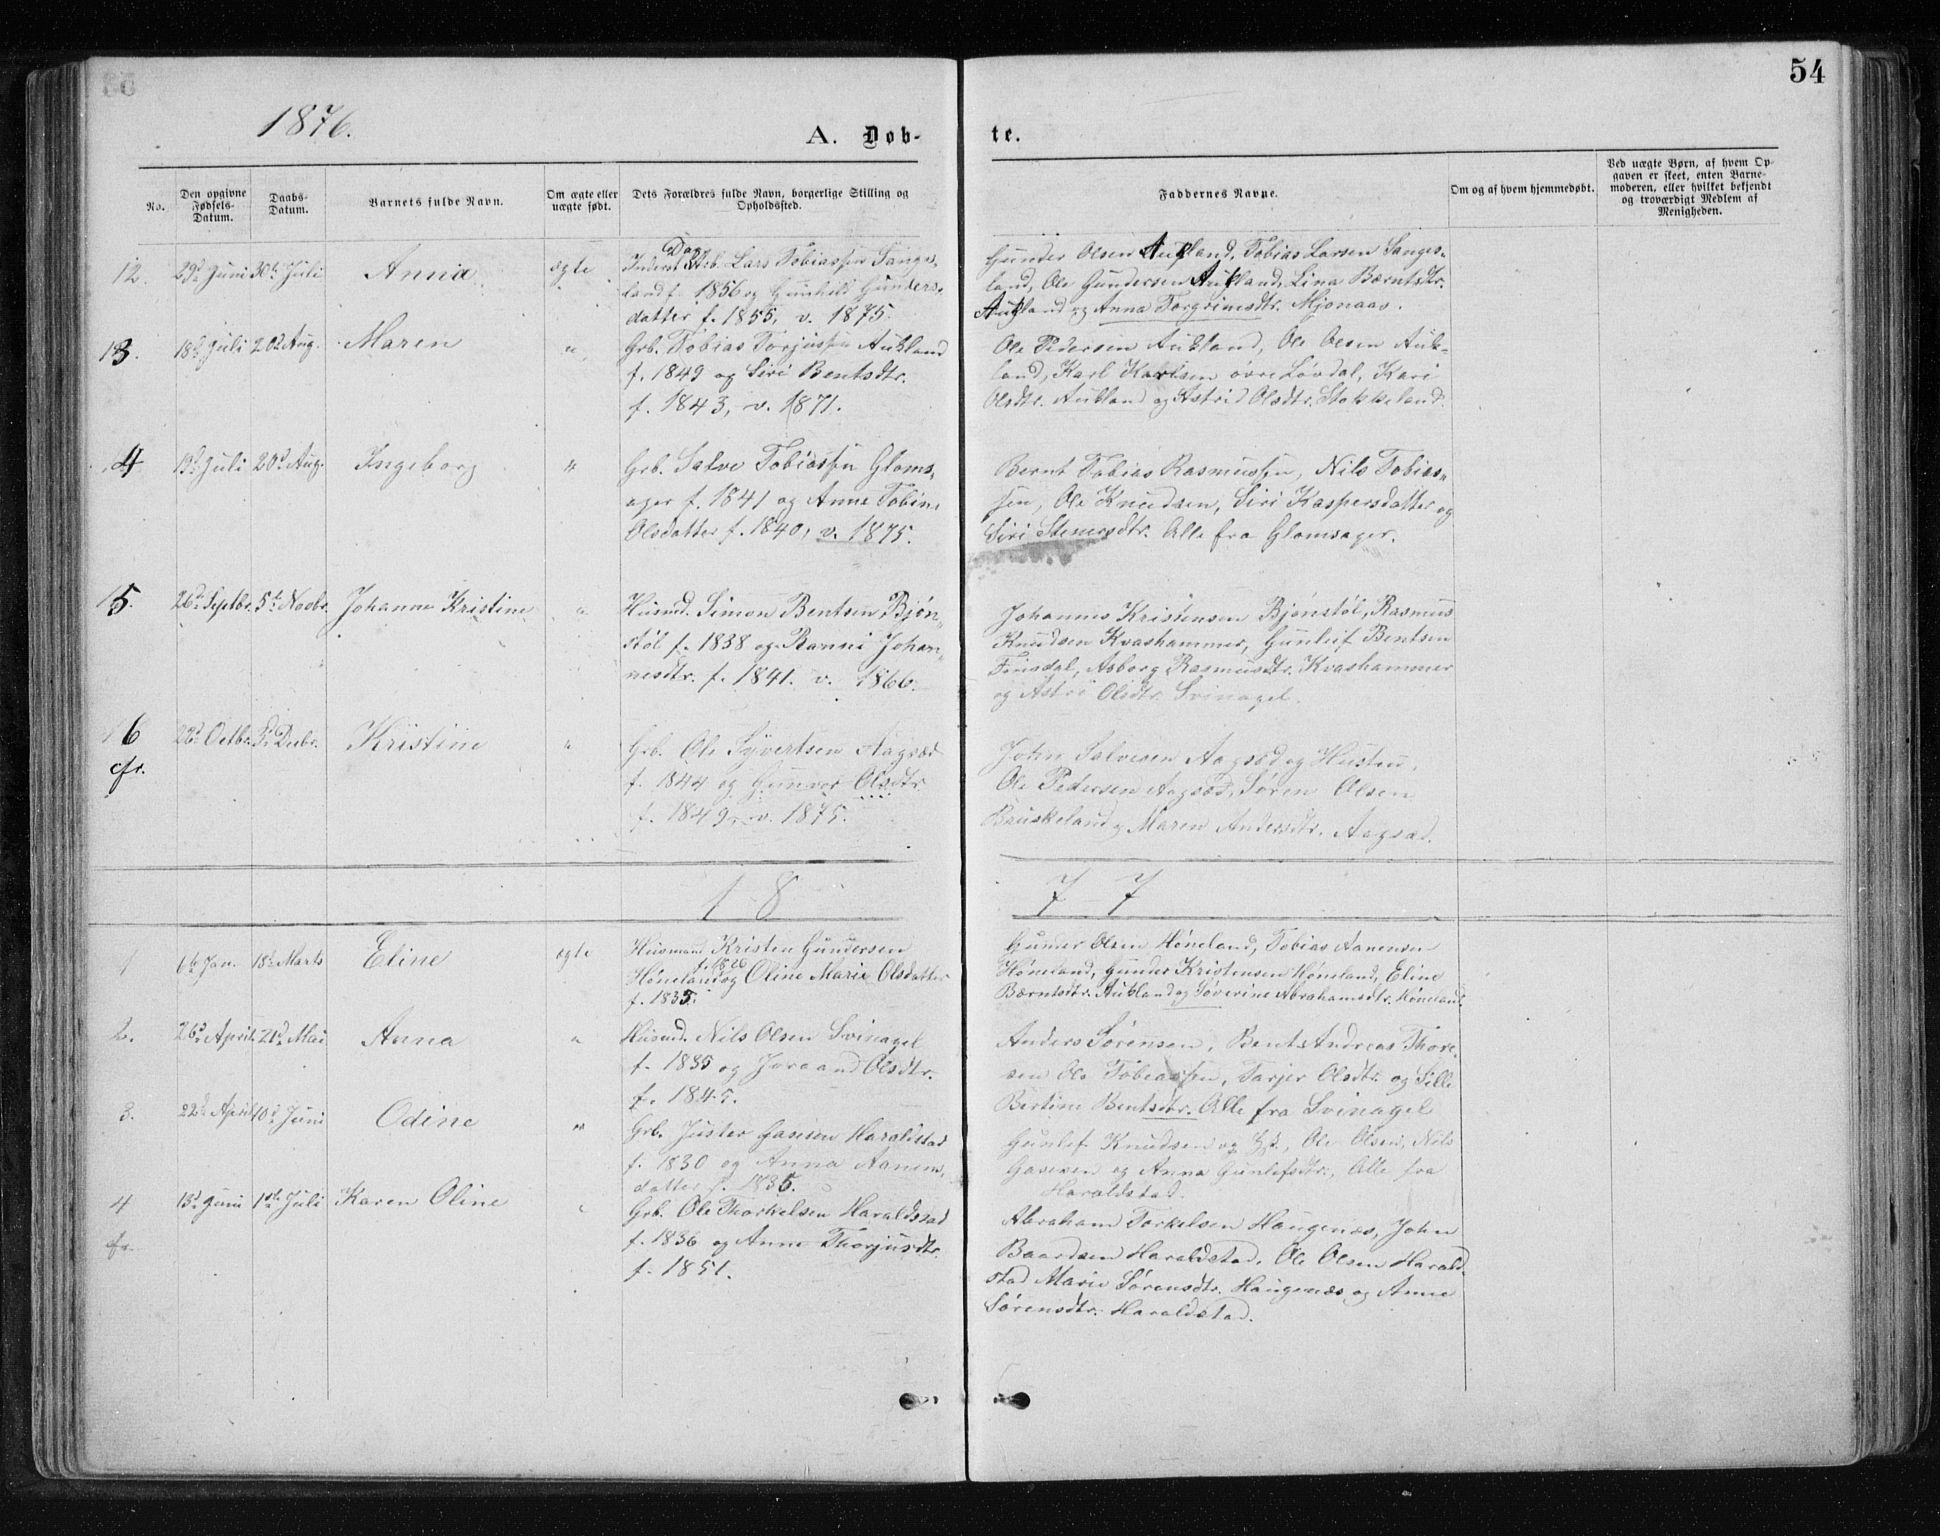 54
1876.
A. Døb-
te.
No.
Den opgivne
Fødsels-
Datum.
Daabs-
Datum.
Barnets fulde Navn.
Om ægte eller
uægte født.
Dets Forældres fulde Navn, borgerlige Stilling og
Opholdssted.
Faddernes Navne.
Om og af hvem hjemmedøbt.
Ved uægte Børn, af hvem Op-
gaven er skeet, enten Barne-
moderen, eller hvilket bekjendt
og troværdigt Medlem af
Menigheden.
12. 29de Juni 30te Juli Annia ægte Inderst Dag Arb. Lars Tobiassen Sanges-
land f. 1856 og Gunhild Gunders-
datter f. 1855, v. 1875.
Gunder Olsen Aukland, Tobias Larsen Sanges-
land, Ole Gundersen Aukland, Lina Bærntsdtr.
Aukland og Anna Torgrimsdtr. Mjonaas.
13. 18de Juli 20de Aug. Maren " Grb. Tobias Torjussen Aukland
f. 1849 og Siri Bentsdtr.
f. 1843, v. 1871.
Ole Pedersen Aukland, Ole Olsen Auk-
land, Karl Karlsen øvre Løvdal, Kari
Olsdtr. Aukland og Astrid Olsdtr. Stokkeland
14 19de Juli 20de Aug. Ingeborg " Grb. Salve Tobiassen Gloms-
ager f. 1841 og Anne Tobine
Olsdatter f. 1840, v. 1875.
Bernt Tobias Rasmussen, Nils Tobias-
sen, Ole Knudsen, Siri Kaspersdatter og
Siri Stenersdtr. Alle fra Glomsager.
15. 26de Septbr. 5te Novbr. Johanne Kristine " Husmd. Simon Bentsen Bjøn-
støl f. 1838 og Ranni Johan-
nesdtr. f. 1841. v. 1866.
Johannes Kristensen Bjønstøl, Rasmus
Knudsen Kvashammer, Gunleif Bentsen
Finsdal, Asborg Rasmusdtr. Kvashammer
og Astri Olsdtr. Svinagel.
16 22de Octbr. 3de Decbr. Kristine " Grb. Ole Syvertsen Aagsæd
cfr. f. 1844 og Gunvor Olsdtr.
f. 1849 v. 1875.
John Salvesen Aagsæd og Hustru,
Ole Pedersen Aagsæd, Søren Olsen
Bruskeland og Maren Andersdtr. Aagsæd.
18 77
1 6te Jan. 18de Marts Eline ægte Husmand Kristen Gundersen
Høneland f. 1826 og Oline Marie Olsdatter
f. 1835.
Gunder Olsen Høneland, Tobias Aanensen
Høneland, Gunder Kristensen Høneland, Eline
Bærntsdtr. Aukland og Søverine Abrahamsdtr. Høneland.
2. 26de April 21de Mai Anna " Husmd. Nils Olsen Svinagel
f. 1835 og Joraand Olsdtr.
f. 1845.
Anders Sørensen, Bent Andreas Thore-
sen Ole Tobiassen, Tarjer Olsdtr. og Sille
Bertine Bentsdtr. Alle fra Svinagel
3. 22de April 10de Juni Odine " Grb. Juster Gausen Haraldstad
f. 1830 og Anna Aanens-
datter f. 1835.
Gunlef Knudsen og Hst., Ole Olsen, Nils
Gavesen og Anna Gunlefsdtr., Alle fra
Haraldstad.
4 13de Juni 1ste Juli Karen Oline " Grb. Ole Thorkelsen Haraldstad
cfr. f. 1836 og Anne Thorjusdtr.
f. 1851.
Abraham Torkelsen Haugenæs, John
Baardsen Haraldstad, Ole Olsen Harald-
stad Marie Sørensdtr. Haugenæs og Anne
Sørensdtr. Haraldstad.